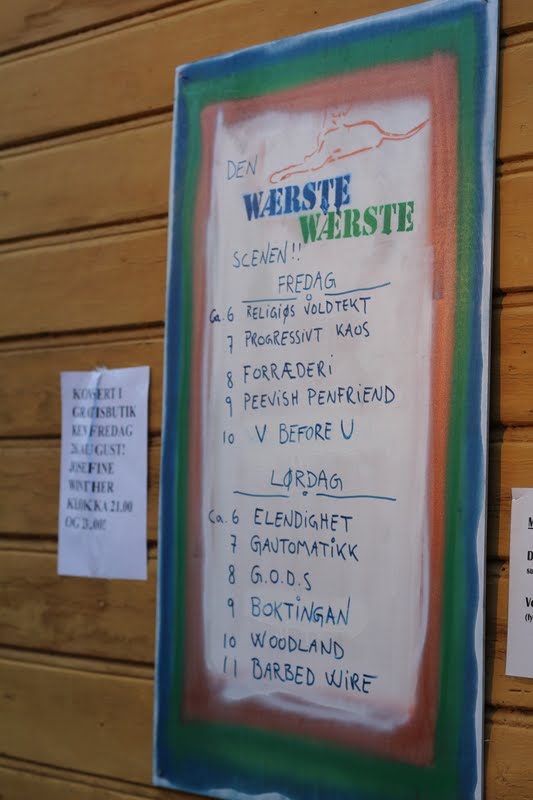 DEN
WÆRSTE
WÆRSTE
SCENEN!!
FREDAG
ca. 6 RELIGIØS VOLDTEKT
7 PROGRESSIVT KAOS
8 FORRÆDERi
9 PEEVISH PENFRIEND
10 V BEFORE U
LØRDAG
ca. 6 ELENDIGHET
7 GAUTOMATIKK
8 G.O.D.S
9 BOKTINGAN
10 WOODLAND
11 BARBED WIRE
KONSERT I
GRATISBUTIK
KEN FREDAG
26.AUGUST!
JOSEFINE
WINTHER
KLOKKA 21.00
OG